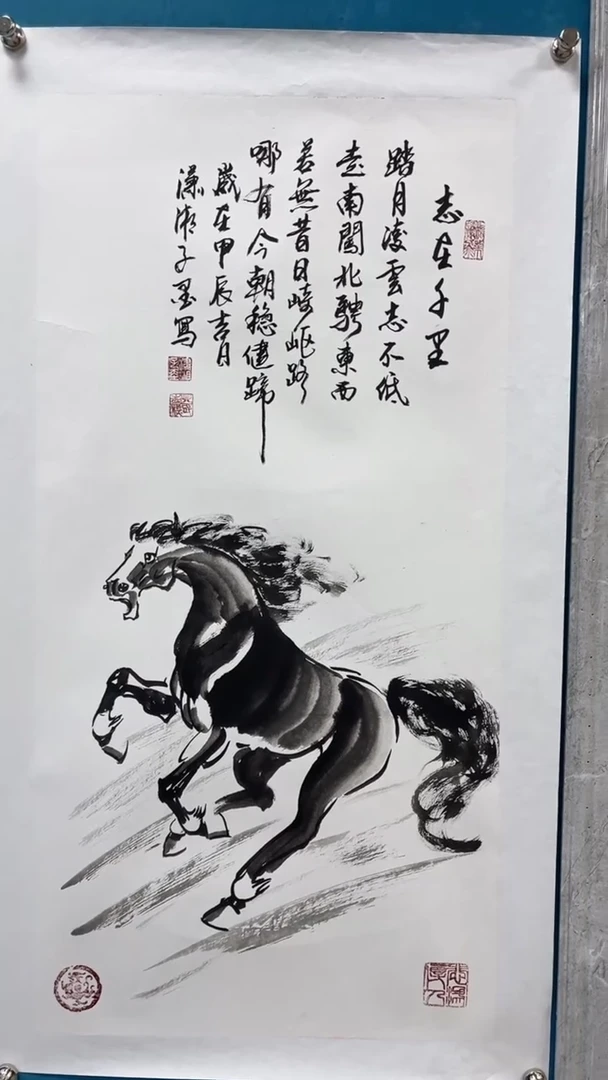 志在千里
踏月凌雲志不低
走南闖北騁東西
若無昔日崎岖路
哪有今朝稳健蹄
歲在甲辰吉日
子墨寫